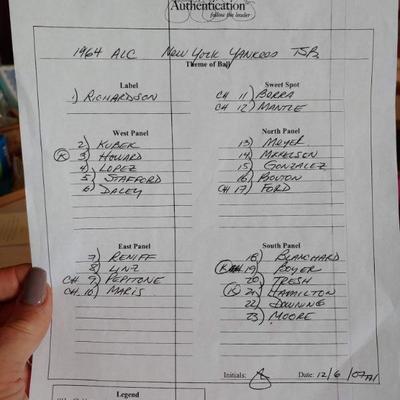 Authentication
follow the leader
1964 ALC NEW YORK YANKEES TSB
Theme of Ball
Label
1) RICHARDSON
Sweet Spot
CH 11) BERRA
CH 12) MANTLE
West Panel
2) KUBEK
K 3) HOWARD
4) LOPEZ
5) STAFFORD
6) DALEY
North Panel
13) MEYER
14) MIKKELSON
15) GONZALEZ
16) BOUTON
CH 17) FORD
East Panel
7) RENIFF
8) LINZ
CH 9) PEPITONE
CH 10) MARIS
South Panel
18) BLANCHARD
19) BOYER
20) TRESH
K 21) HAMILTON
22) DOWNING
23) MOORE
Initials:
Date: 12/6/07
Legend